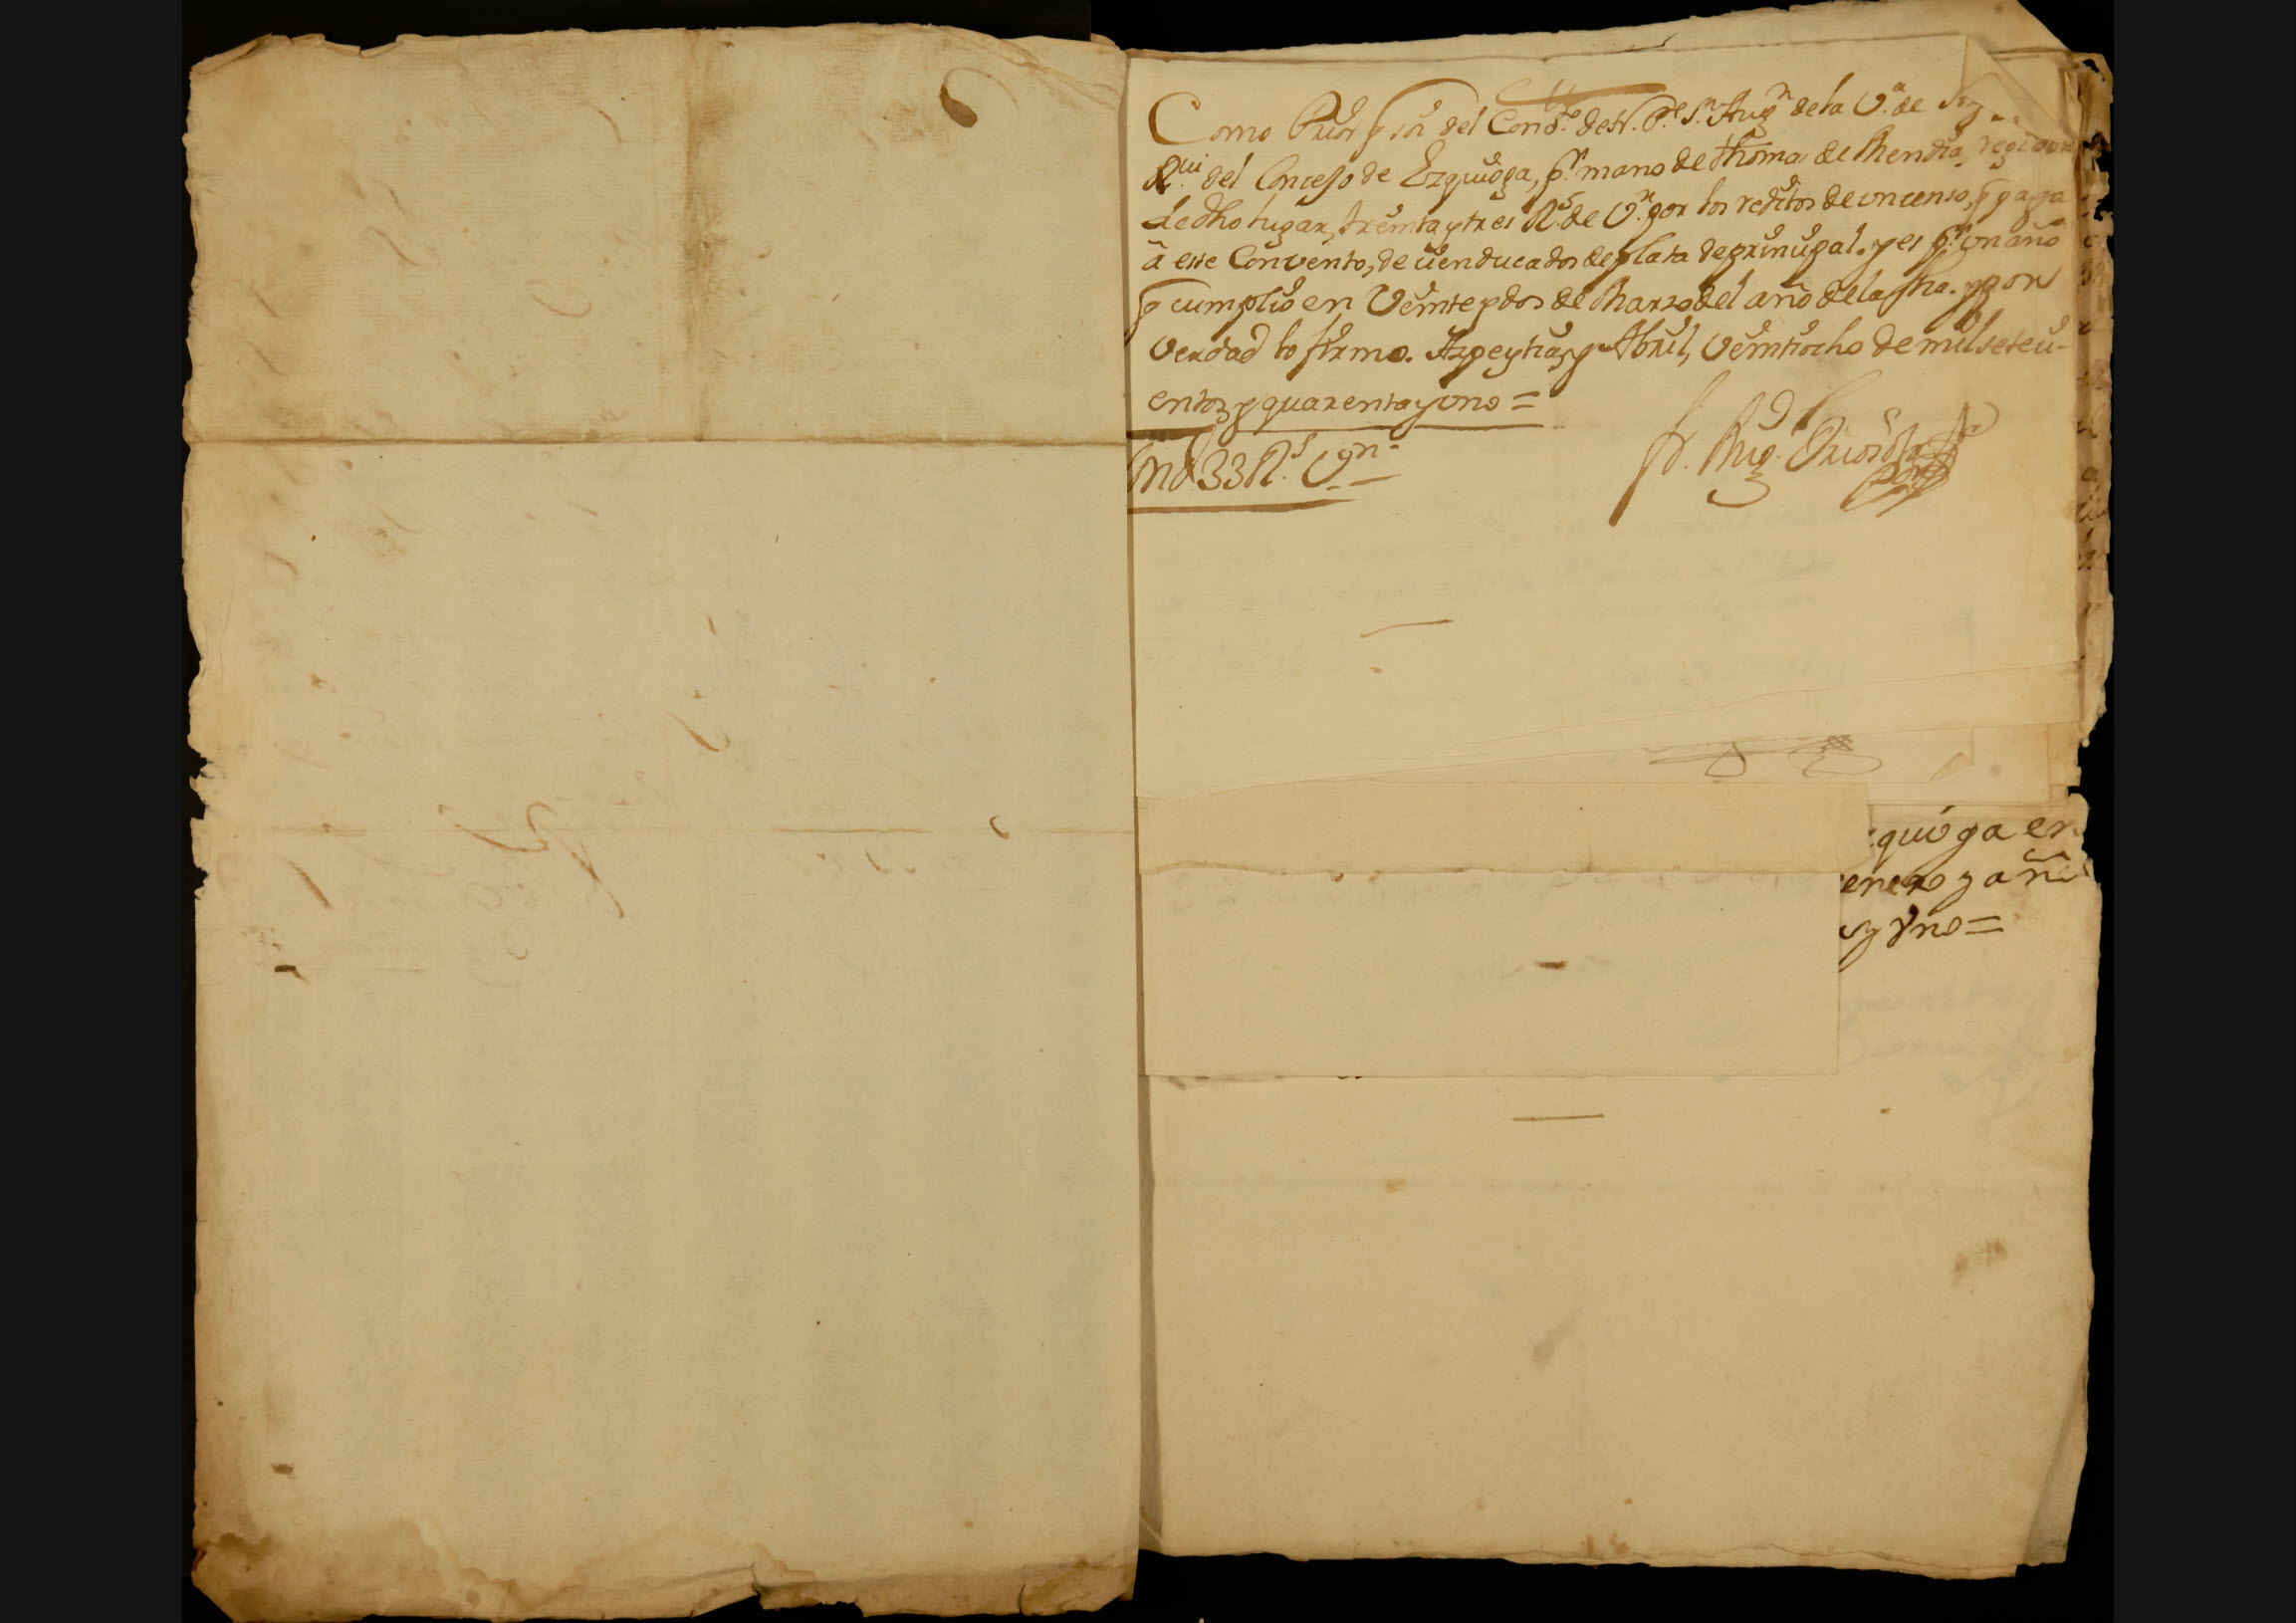 Como Prior q̃ soi del Conv.to de N. P.e S.n Aug.n de la V.a de
R.ui del Concejo de Ezquioga, p.r mano de thomas de Mendia, regidor
de dho lugar, treinta y tres R.s de V.n por los reditos de un censo, q̃ paga
â este Convento, de cien ducados de plata de principal. y es p.r un año
q̃ cumplió en Veinte y dos de Marzo del año de la fha. y por
verdad lo firmo. Azpeytia, y Abril, veintiocho de mil seteci-
entos y quarenta y uno =
33 R.s V.n
fr. Aug.
quioga en
enero y año
y Vno =